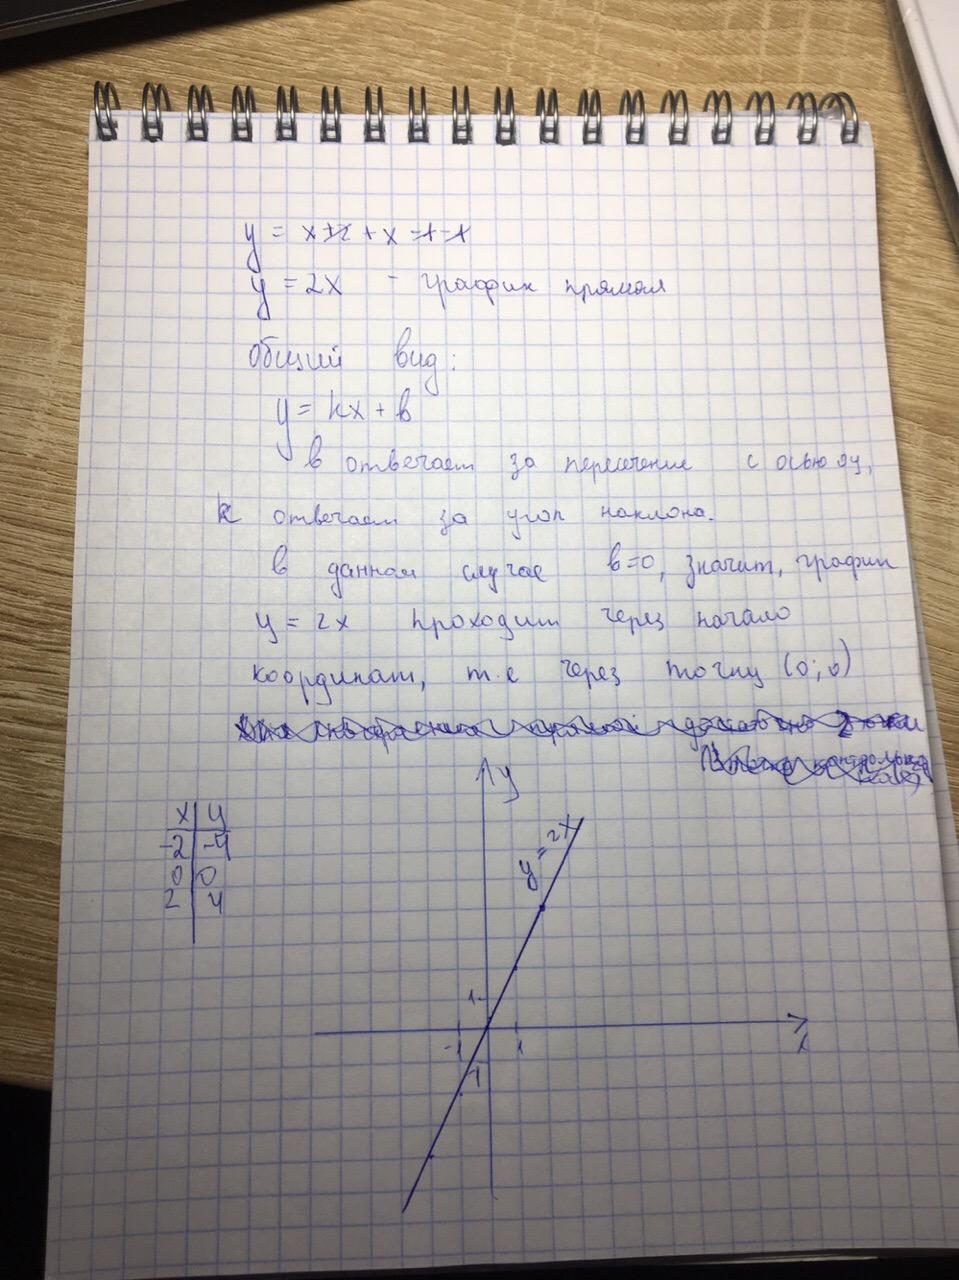 y = x+2 + x -1-1
y = 2x - график прямая
Общий вид:
y = kx + b
b отвечает за пересечение с осью oy,
k отвечает за угол наклона.
в данном случае b=0, значит, график
y = 2x проходит через начало
координат, т.е через точку (0;0)
y
x y
-2 -4
0 0
2 4
y = 2x
1
-1 1
x
-1